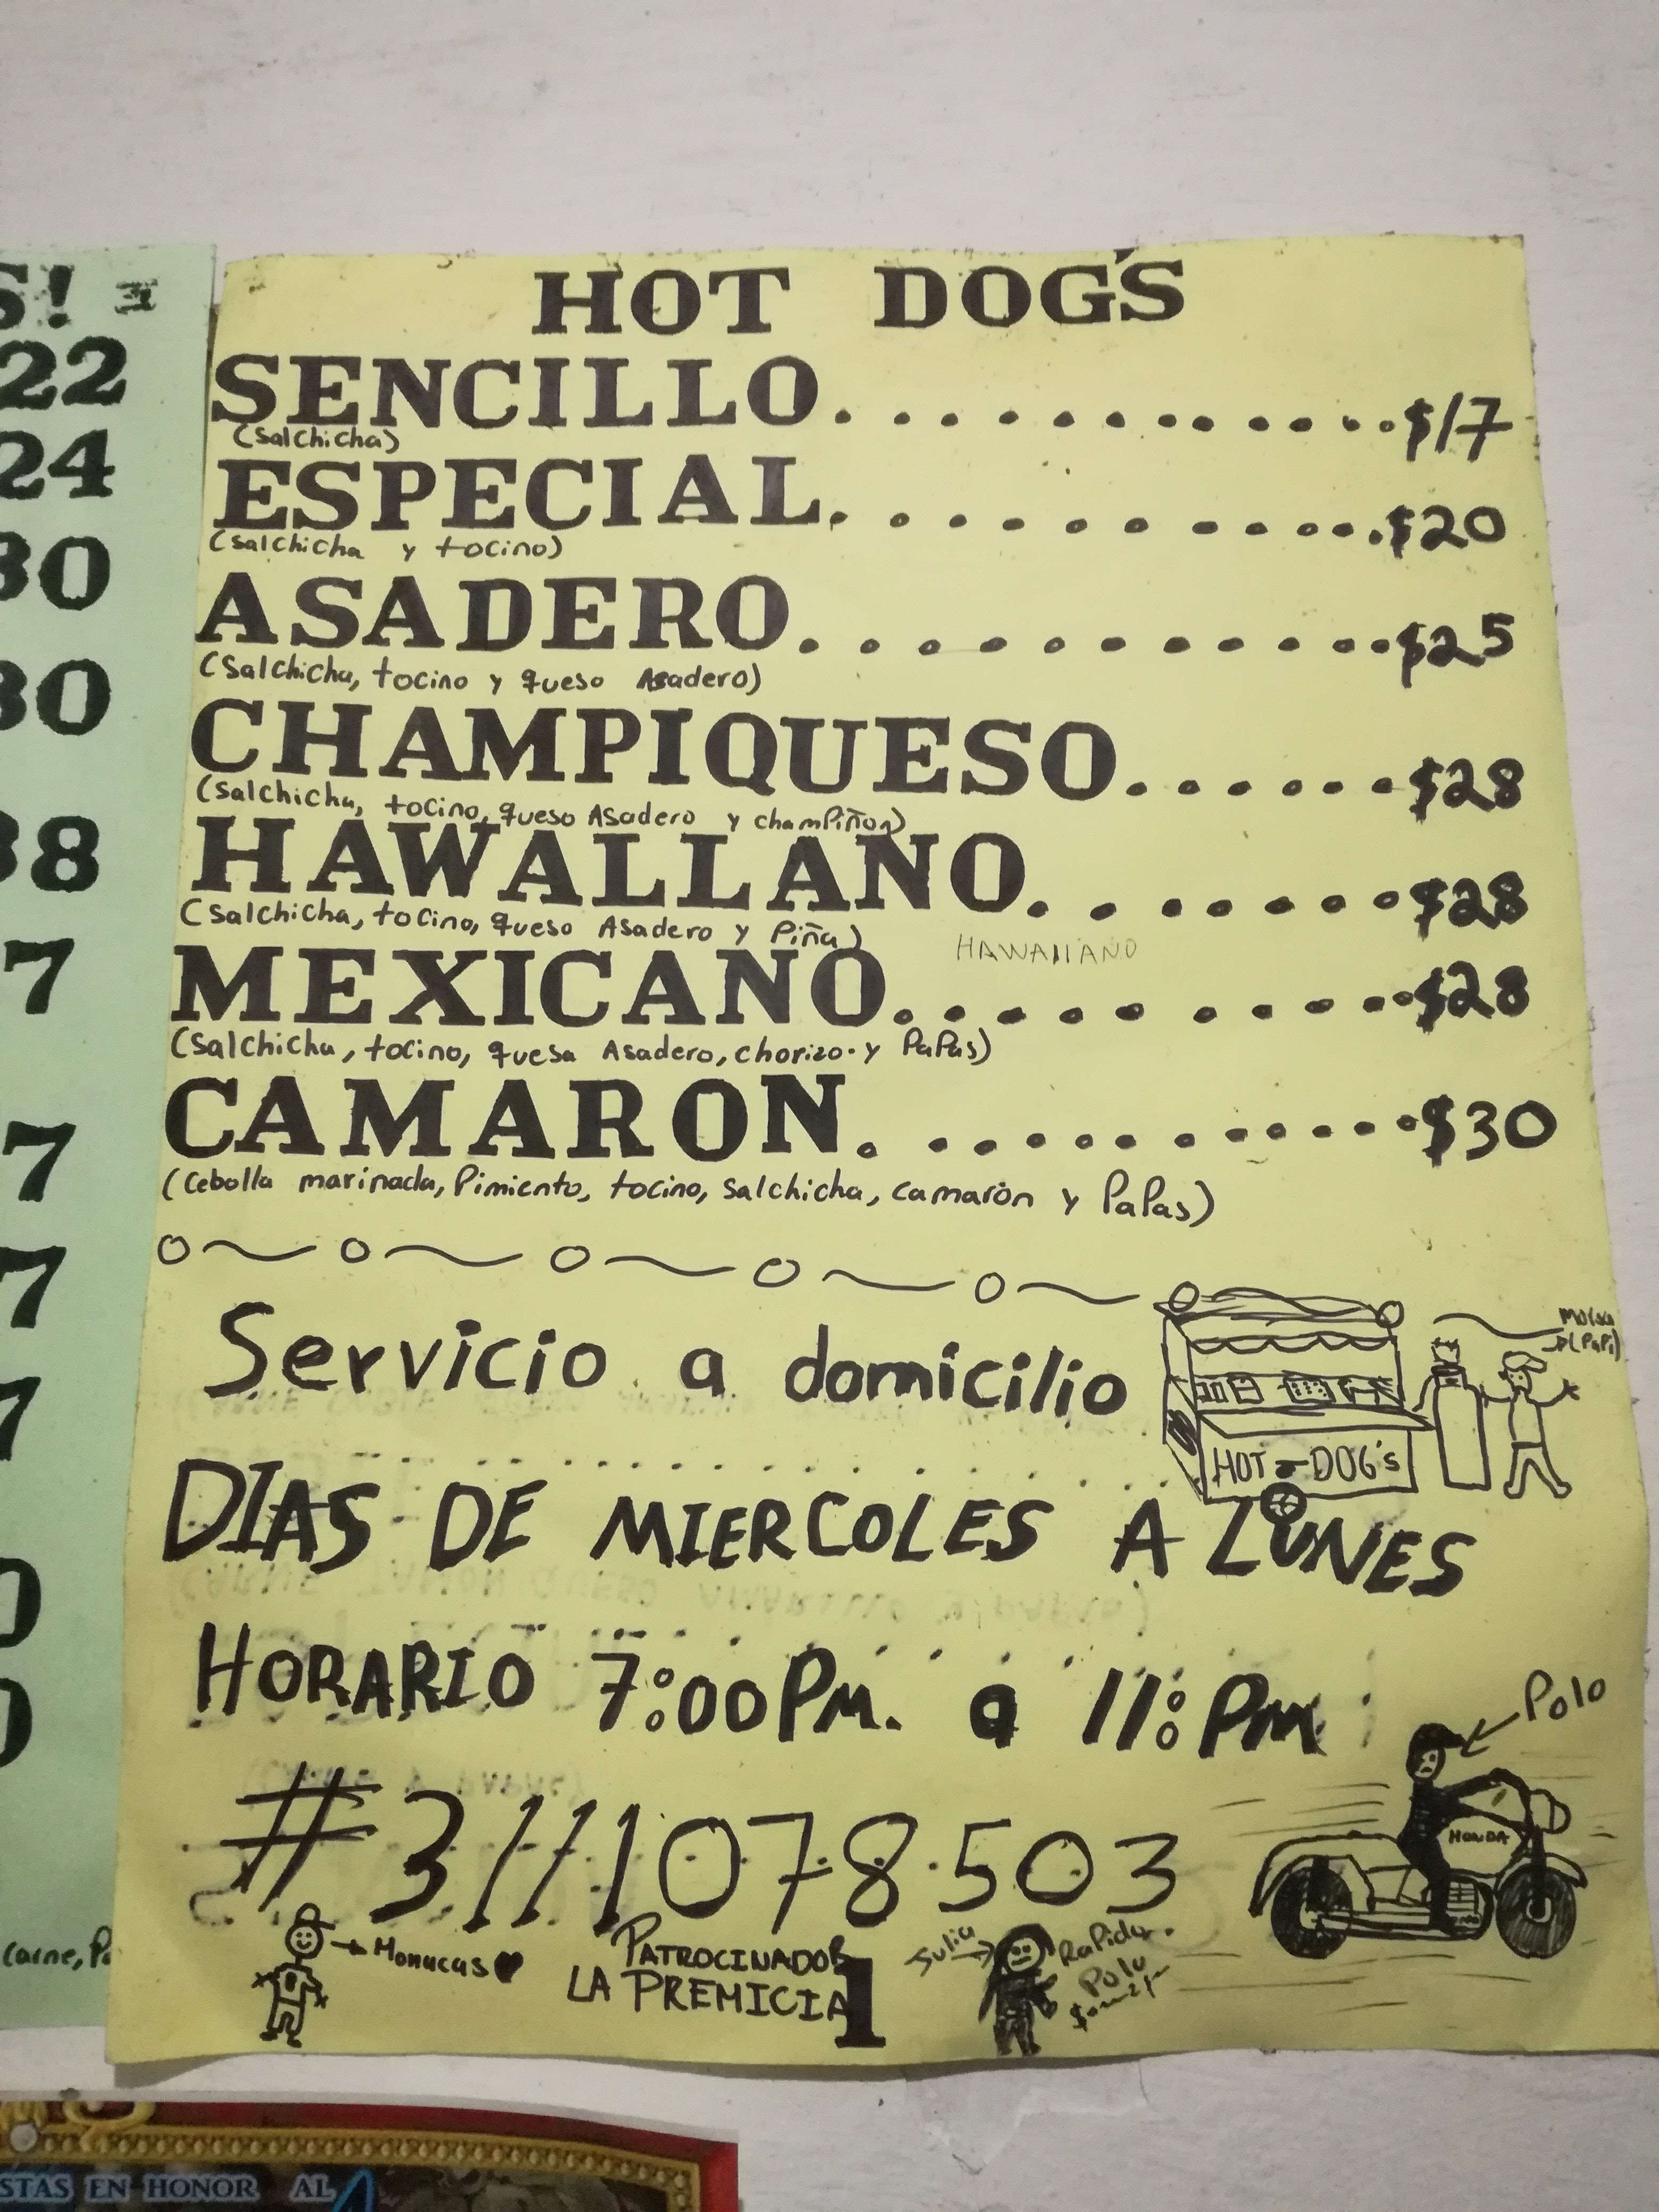 HOT DOG'S
SENCILLO............$17
(Salchicha)
ESPECIAL............$20
(Salchicha y tocino)
ASADERO............$25
(Salchicha, tocino y queso Asadero)
CHAMPIQUESO.......$28
(Salchicha, tocino, queso Asadero y champiñon)
HAWALLANO........$28
(Salchicha, tocino, queso Asadero y Piña)
HAWAIIANO
MEXICANO..........$28
(Salchicha, tocino, quesa Asadero, chorizo y PaPas)
CAMARON............$30
(Cebolla marinada, Pimiento, tocino, Salchicha, camarón y PaPas)
Servicio a domicilio
(PaPi)
HOT-DOG's
DIAS DE MIERCOLES A LUNES
HORARIO 7:00 Pm. a 11: Pm
Polo
HONDA
#3111078503
Monucas
PATROCINADOR
LA PREMICIA 1
Julia
Polo
S! =
22
24
30
30
38
7
7
7
7
0
0
carne, Pa
STAS EN HONOR AL